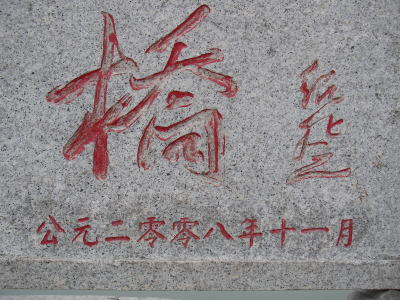 橋
公元二零零八年十一月